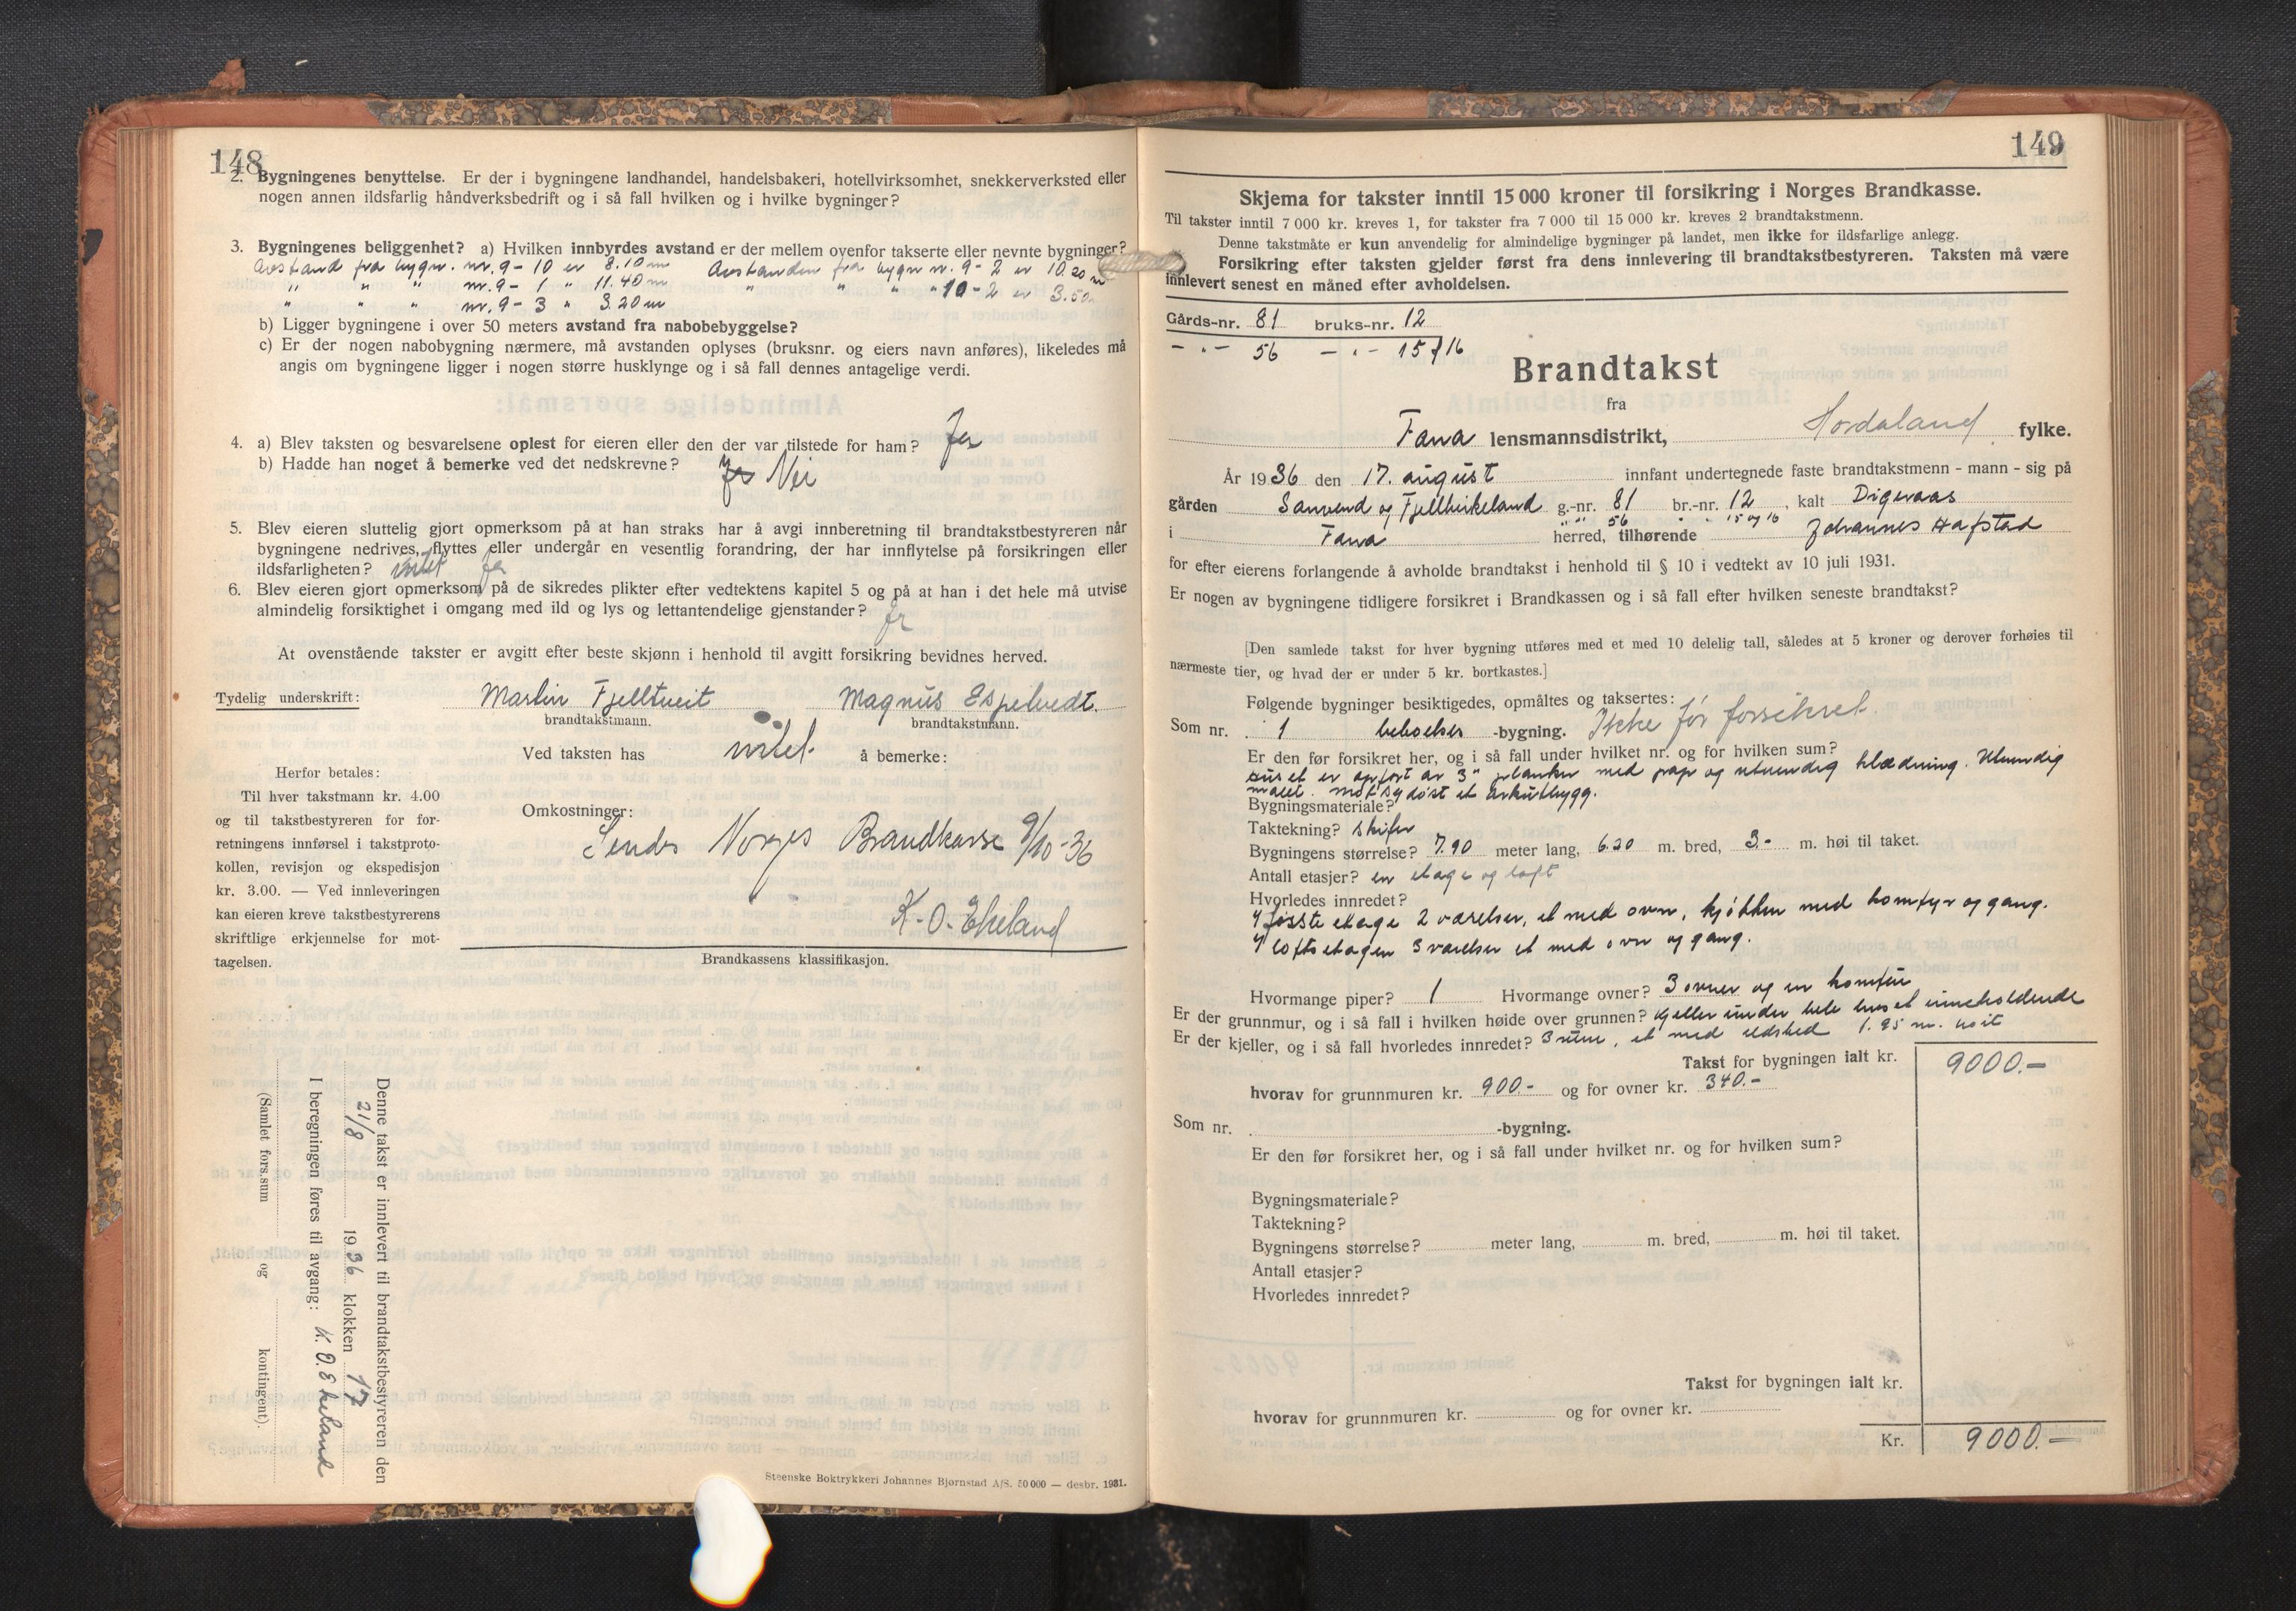 148
2. Bygningenes benyttelse. Er der i bygningene landhandel, handelsbakeri, hotellvirksomhet, snekkerverksted eller
nogen annen ildsfarlig håndverksbedrift og i så fall hvilken og i hvilke bygninger?
3. Bygningenes beliggenhet? a) Hvilken innbyrdes avstand er der mellem ovenfor takserte eller nevnte bygninger?
Avstand fra bygn. nr. 9 - 10 er 8.10 m Avstanden fra bygn nr. 9 - 2 er 10.20 m
" " " nr. 9 - 1 " 11.40 m " " " " 10 - 2 er 3.50 m
" " " nr. 9 - 3 " 3.20 m
b) Ligger bygningene i over 50 meters avstand fra nabobebyggelse?
c) Er der nogen nabobygning nærmere, må avstanden oplyses (bruksnr. og eiers navn anføres), likeledes må
angis om bygningene ligger i nogen større husklynge og i så fall dennes antagelige verdi.
4. a) Blev taksten og besvarelsene oplest for eieren eller den der var tilstede for ham? Ja
b) Hadde han noget å bemerke ved det nedskrevne? Ja Nei
5. Blev eieren sluttelig gjort opmerksom på at han straks har å avgi innberetning til brandtakstbestyreren når
bygningene nedrives, flyttes eller undergår en vesentlig forandring, der har innflytelse på forsikringen eller
ildsfarligheten? intet Ja
6. Blev eieren gjort opmerksom på de sikredes plikter efter vedtektens kapitel 5 og på at han i det hele må utvise
almindelig forsiktighet i omgang med ild og lys og lettantendelige gjenstander? Ja
At ovenstående takster er avgitt efter beste skjønn i henhold til avgitt forsikring bevidnes herved.
Tydelig underskrift: Martin Fjelltveit Magnus Espelvedt.
brandtakstmann. brandtakstmann.
Ved taksten has intet å bemerke:
Herfor betales:
Til hver takstmann kr. 4.00
og til takstbestyreren for for-
retningens innførsel i takstproto-
kollen, revisjon og ekspedisjon
kr. 3.00. — Ved innleveringen
kan eieren kreve takstbestyrerens
skriftlige erkjennelse for mot-
tagelsen.
Omkostninger:
Sendes Norges Brandkasse 9/10-36
K. O. Ekeland
Brandkassens klassifikasjon.
Denne takst er innlevert til brandtakstbestyreren den
21/8 1936 klokken 17
I beregningen føres til avgang: K. O. Ekeland
(Samlet fors.sum og kontingent).
Steenske Boktrykkeri Johannes Bjørnstad A/S. 50 000 — desbr. 1931.
149
Skjema for takster inntil 15 000 kroner til forsikring i Norges Brandkasse.
Til takster inntil 7 000 kr. kreves 1, for takster fra 7 000 til 15 000 kr. kreves 2 brandtakstmenn.
Denne takstmåte er kun anvendelig for almindelige bygninger på landet, men ikke for ildsfarlige anlegg.
Forsikring efter taksten gjelder først fra dens innlevering til brandtakstbestyreren. Taksten må være
innlevert senest en måned efter avholdelsen.
Gårds-nr. 81 bruks-nr. 12
- " - 56 - " - 15 / 16
Brandtakst
fra
Fana lensmannsdistrikt, Hordaland fylke.
År 1936 den 17. august innfant undertegnede faste brandtakstmenn - mann - sig på
gården Sanvend og Fjellbirkeland g.-nr. 81 br.-nr. 12, kalt Digeraas
" " 56 " " 15 og 16
i Fana herred, tilhørende Johannes Hafstad
for efter eierens forlangende å avholde brandtakst i henhold til § 10 i vedtekt av 10 juli 1931.
Er nogen av bygningene tidligere forsikret i Brandkassen og i så fall efter hvilken seneste brandtakst?
[Den samlede takst for hver bygning utføres med et med 10 delelig tall, således at 5 kroner og derover forhøies til
nærmeste tier, og hvad der er under 5 kr. bortkastes.]
Følgende bygninger besiktigedes, opmåltes og taksertes:
Som nr. 1 beboelses -bygning. Ikke før forsikret.
Er den før forsikret her, og i så fall under hvilket nr. og for hvilken sum?
Huset er opført av 3" planker med pap og utvendig klædning. Utvendig
malet. Mot sydøst et arkutbygg.
Bygningsmateriale?
Taktekning? skifer
Bygningens størrelse? 7.90 meter lang, 6.20 m. bred, 3.- m. høi til taket.
Antall etasjer? en etage og loft
Hvorledes innredet?
I første etage 2 værelser, et med ovn, kjøkken med komfyr og gang.
I loftsetagen 3 værelser et med ovn og gang.
Hvormange piper? 1 Hvormange ovner? 3 ovner og en komfür
Er der grunnmur, og i så fall i hvilken høide over grunnen? Kjeller under hele huset inneholdende
Er der kjeller, og i så fall hvorledes innredet? 3 rum, et med ildsted 1.95 m. høit
Takst for bygningen ialt kr. 9000.-
hvorav for grunnmuren kr. 900.- og for ovner kr. 340.-
Som nr. -bygning.
Er den før forsikret her, og i så fall under hvilket nr. og for hvilken sum?
Bygningsmateriale?
Taktekning?
Bygningens størrelse? meter lang, m. bred, m. høi til taket.
Antall etasjer?
Hvorledes innredet?
Takst for bygningen ialt kr.
hvorav for grunnmuren kr. og for ovner kr.
Kr. 9000.-